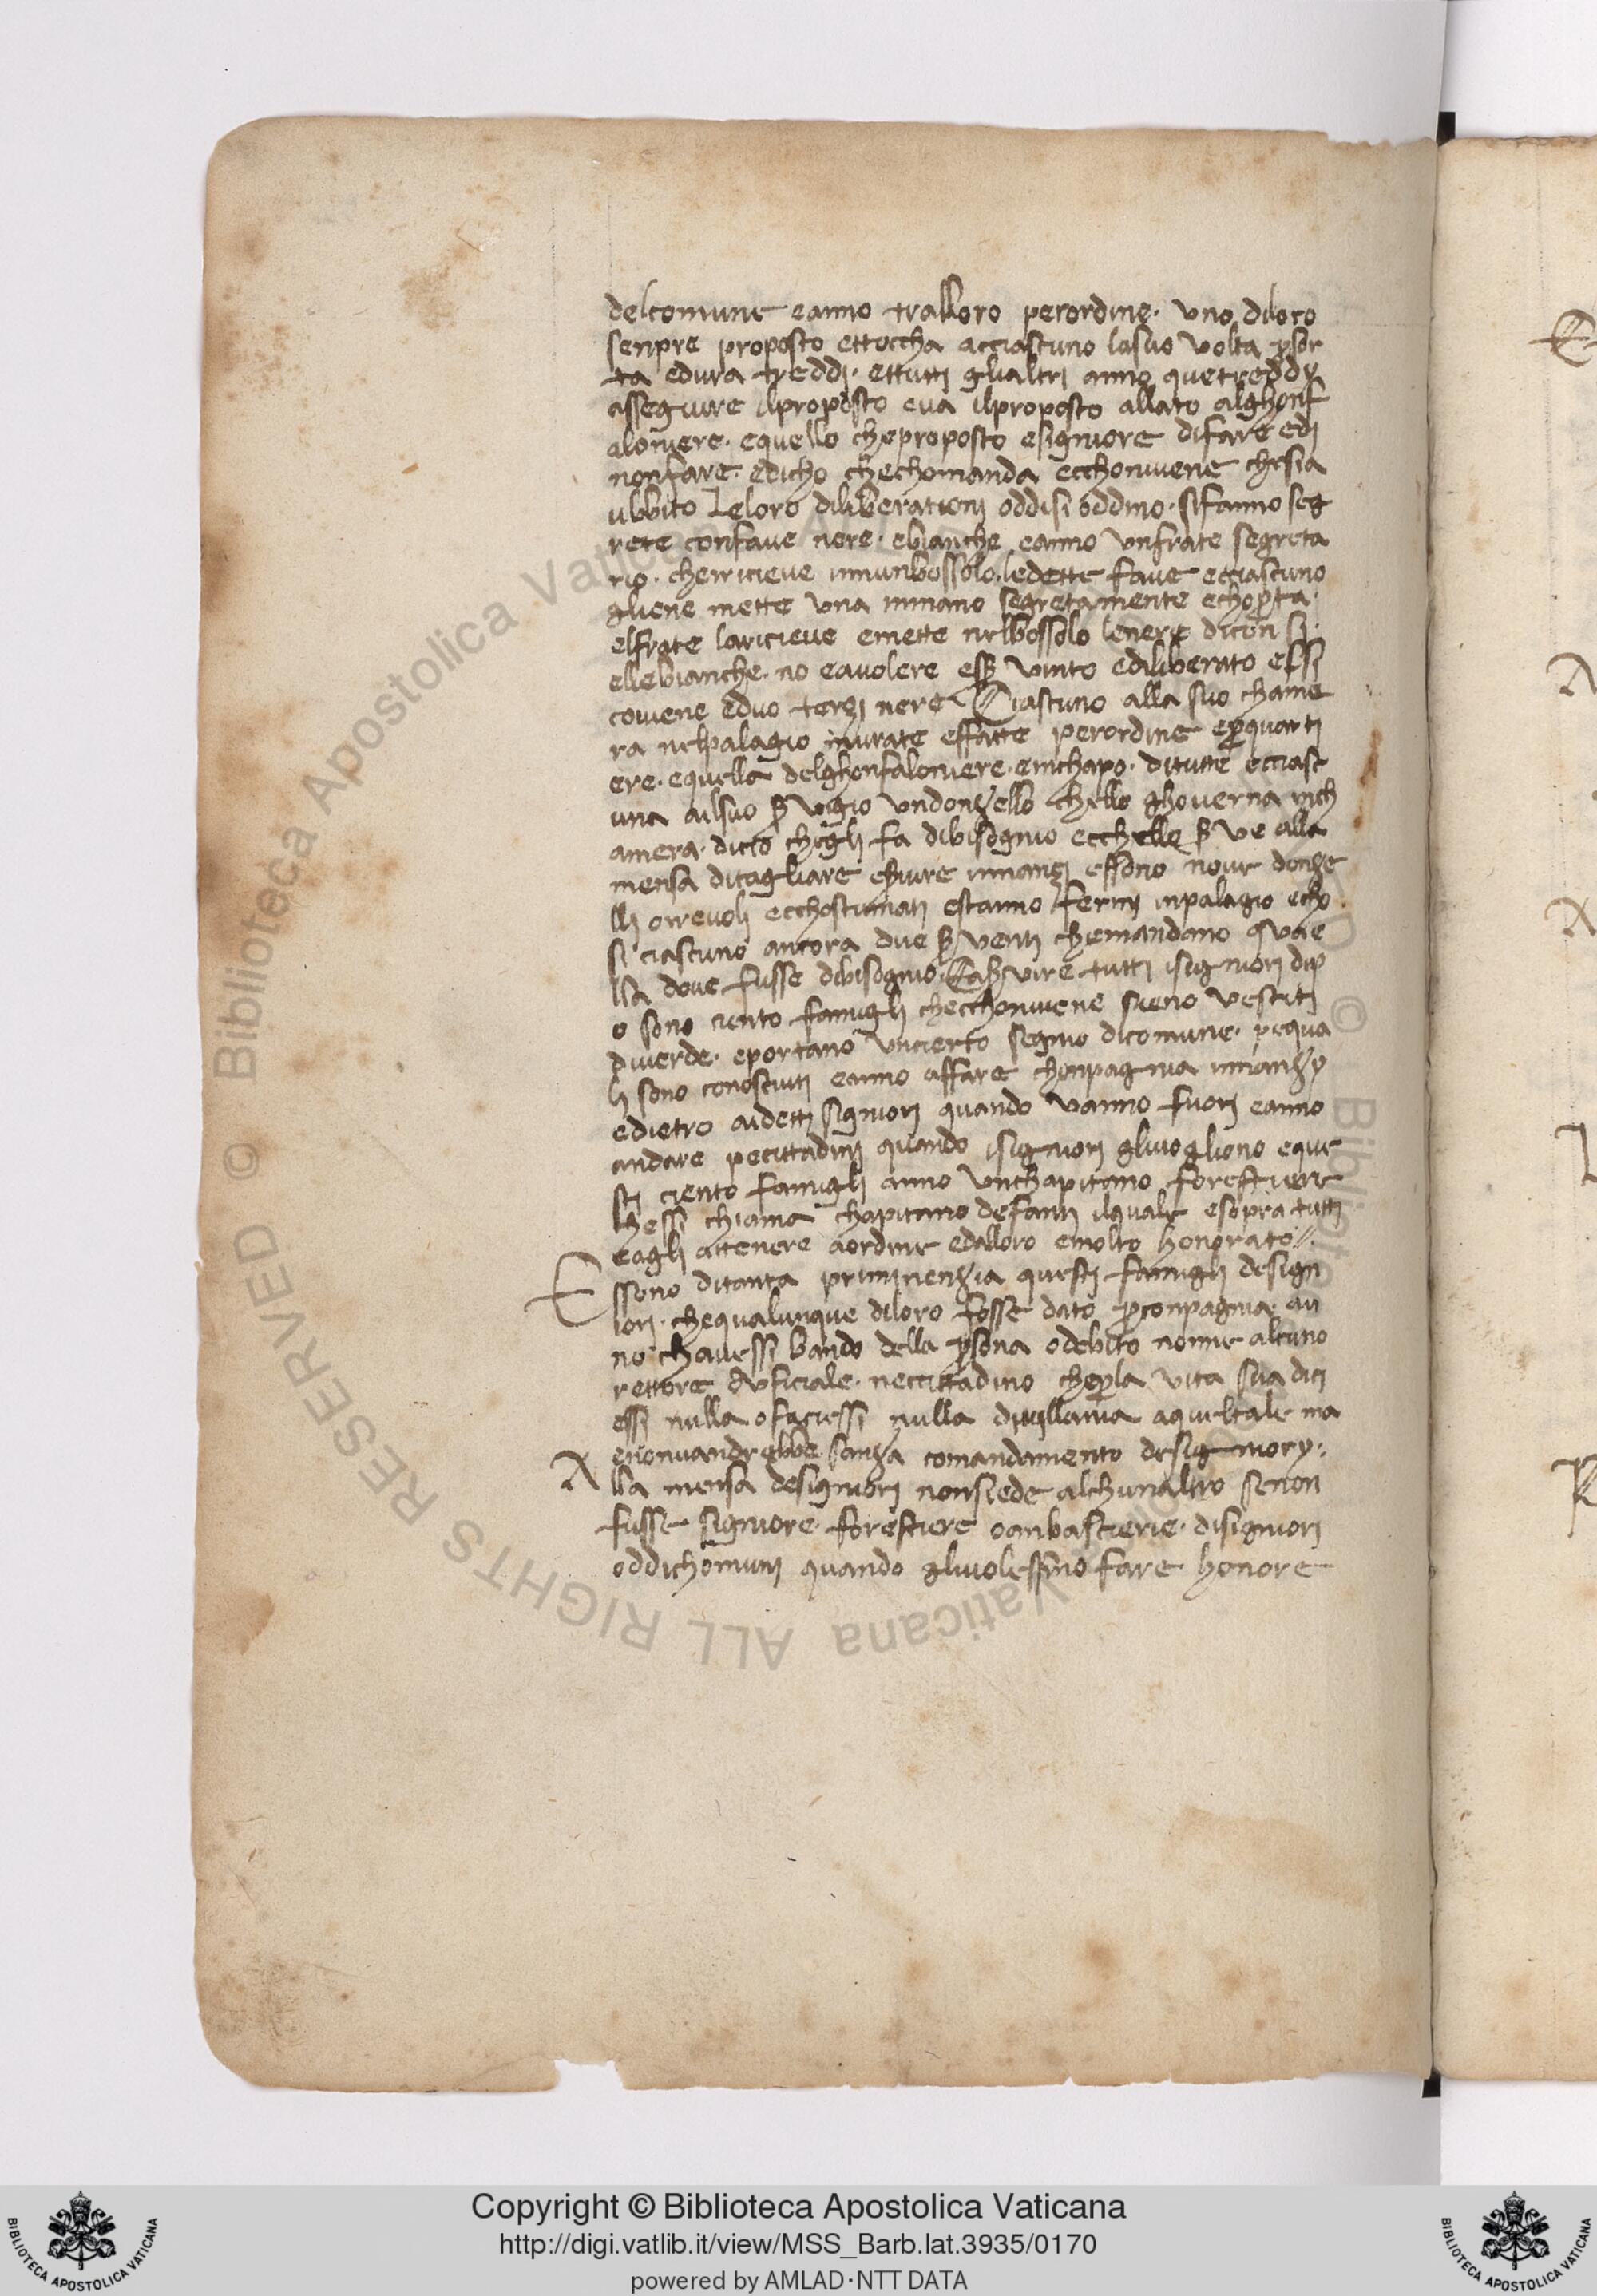 delcomune eanno tralloro perordine · uno diloro
senpre proposto ettoccha acciascuno lasuo volta ꝑsor
ta edura treddi · ettutti glialtri anno quetreddy
asseguire ilproposto eva ilproposto allato alghonf
aloniere · equello cheproposto esigniore difare edi
nonfare · edicho chechomanda ecchonviene chesia
ubbito Leloro diliberationi oddisi oddino · sifanno seg
rete confave nere · ebianche eanno unfrate segreta
rio · cherricieve innunbossolo · ledette fave ecciascuno
gliene mette una inmano segretamente echoꝑta ·
elfrate laricieve emette nelbossolo lenere dicon si ·
ellebianche · no eavolere esẞ vinto ediliberato essi
coviene eduo terzi nere Ciascuno alla suo chame
ra nelpalagio murate effatte perordine eꝑquarti
ere · equella delghonfaloniere · einchapo · ditutte ecciasc
una alsuo ẞvigio undonzello chello ghoverna inch
amera · dicio chegli fa dibisognio ecchello ẞve alla
mensa ditagliare eẞvire innanzi essono nove donze
lli orrevoli ecchostumati estanno fermi inpalagio echo
si ciascuno ancora due ẞventi chemandano qua e
lla dove fusse dibisognio · Eaẞvire tutti isigniori dip
o sono ciento famigli checchonviene sieno vestiti
diverde · eportano uncierto segnio dicomune · peiqua
li sono conosciuti eanno affare chonpagnia innanzy
edietro aidetti signiori quando vanno fuori eanno
andare pecittadini quando isigniori glivogliono eque
sti ciento famigli anno unchapitano forestiere
chessi chiama chapitano defanti ilquale esopra tutti
eagli attenere aordine edalloro emolto honorato //
Essono ditanta priminenzia questi famigli design
iori · chequalunque diloro fosse dato ꝑconpagnia au
no chavessi bando della ꝑsona odebito nonne alcuno
rettore oUficiale · neccittadino cheꝑla vita sua dici
essi nulla ofaciessi nulla divillania aqueltale ma
enonvandrebbe sanza comandamento designiory :
Alla mensa designiori nonsiede alchunaltro senon
fusse signiore · forestiere oanbascierie · disigniori
oddichomuni quando glivolessino fare honore
Copyright © Biblioteca Apostolica Vaticana
http://digi.vatlib.it/view/MSS_Barb.lat.3935/0170
powered by AMLAD·NTT DATA